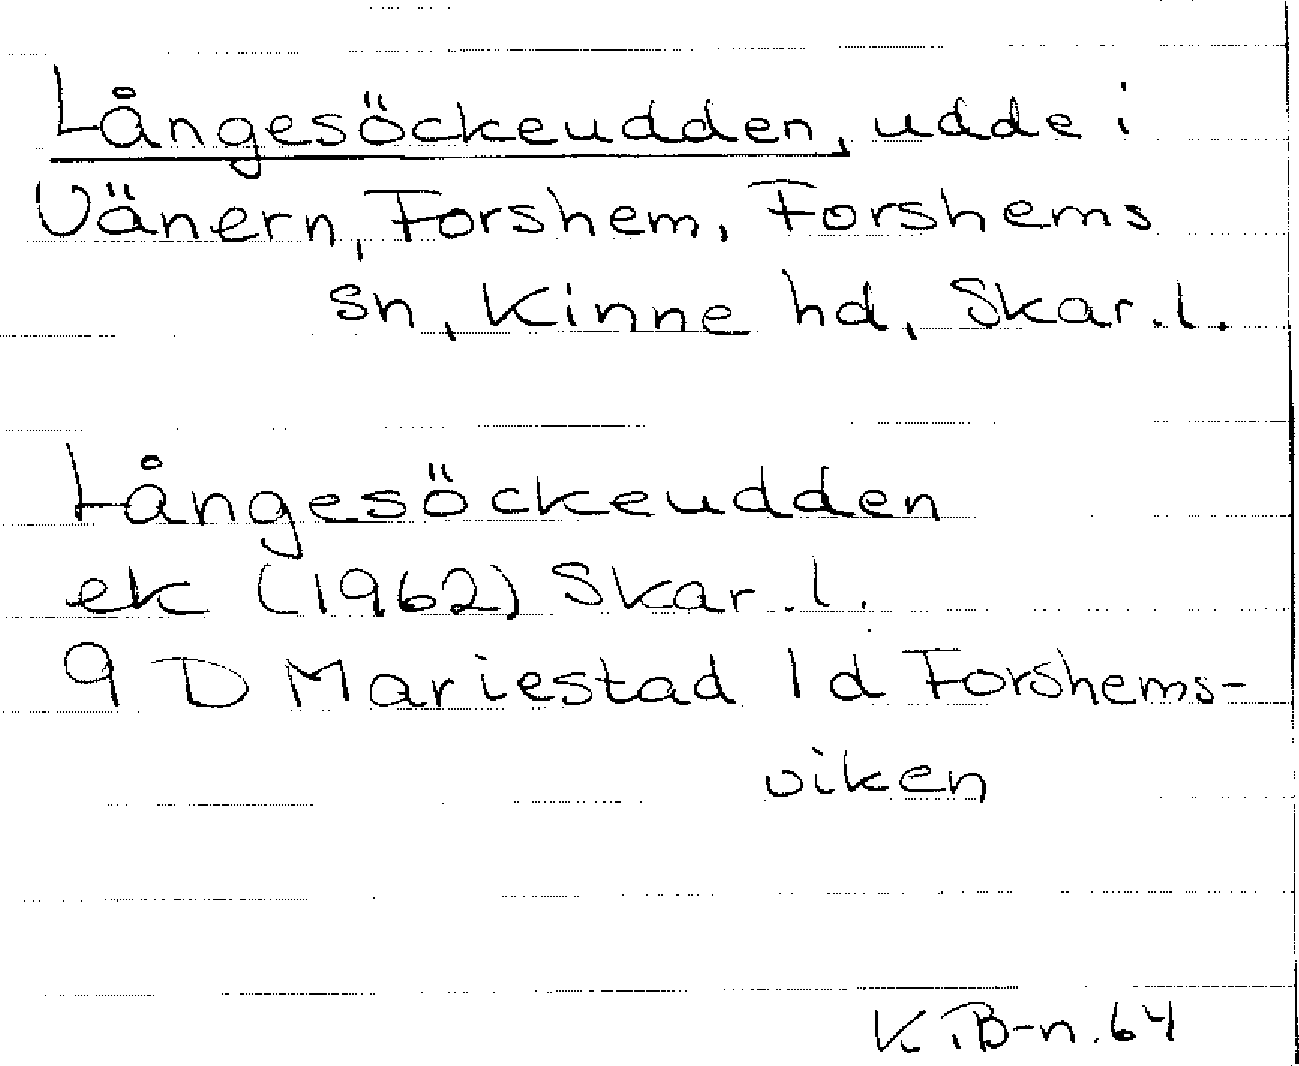 Långesöckeudden, udde i
Vänern, Forshem, Forshems
sn, Kinne hd, Skar.l.
Långesöckeudden
ek (1962) Skar.l.
9 D Mariestad 1 d Forshems-
viken
K.B-n.64